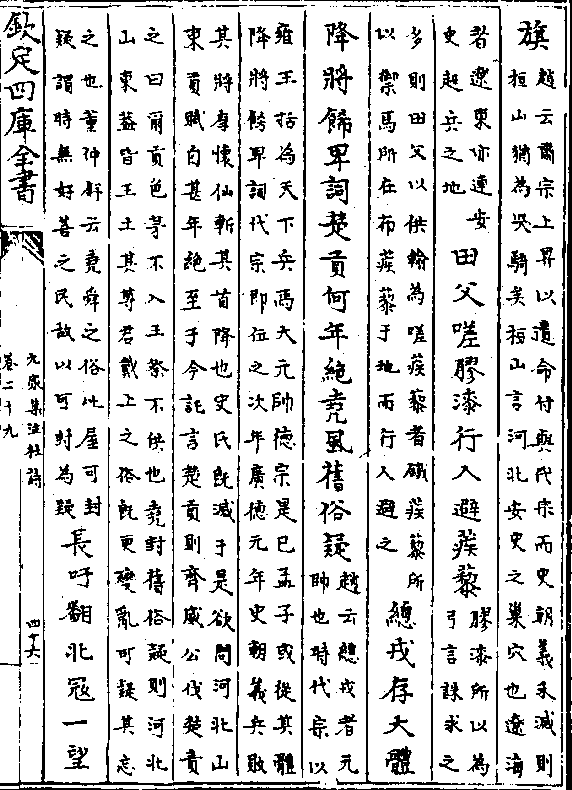 旗趙云肅宗上昇以遺命付與代宗而史朝義未滅則
桓山猶為突騎矣桓山言河北安史之巢穴也遼海
者遼東亦連安
史起兵之地
田父嗟膠漆行人避蒺藜
膠漆所以為
弓言誅求之
多則田父以供輸為嗟蒺藜者鐵蒺藜所
以禦馬所在布蒺藜于地而行人避之
總戎存大體
降將飾卑詞楚貢何年絶堯風舊俗疑
趙云總戎者元
帥也時代宗以
雍王括為天下兵馬大元帥德宗是已孟子或從其體
降將飾卑詞代宗即位之次年廣德元年史朝義兵敗
其將李懷仙斬其首降也史氏既滅于是欲問河北山
東貢賦自甚年絶至于今託言楚貢則齊威公伐楚責
之曰爾貢包茅不入王祭不供也堯封舊俗疑則河北
山東蓋皆王土其尊君戴上之俗既更變亂可疑其忘
之也董仲舒云堯舜之俗比屋可封
疑謂時無好善之民故以可封為疑
長吁翻北冦一望
欽定四庫全書
九家集注杜詩
卷二十九
四十六